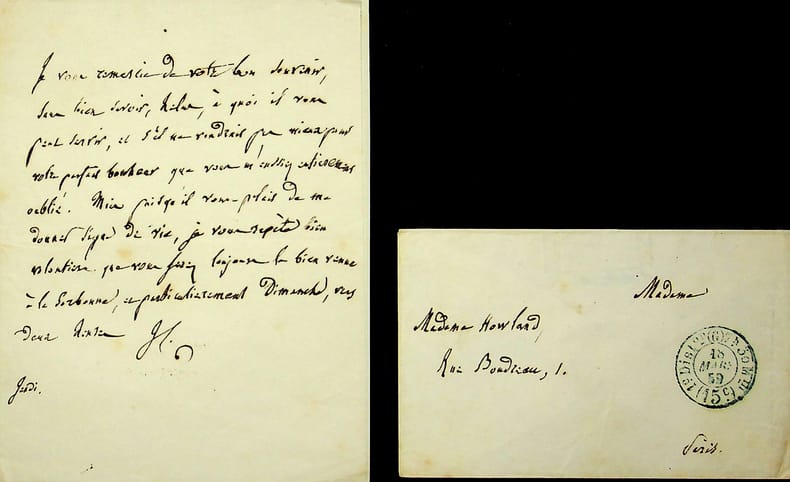 Je vous remercie de votre bon souvenir,
sans bien savoir, hélas, à quoi il vous
peut servir, et s'il ne vaudrait pas mieux pour
votre parfait bonheur que vous m'eussiez entièrement
oublié. Mais puisqu'il vous plait de me
donner signe de vie, je vous répète bien
volontiers que vous serez toujours la bien venue
à la Sorbonne, et particulièrement Dimanche, vers
deux heures
Jeudi.
Madame
Madame Howland,
Rue Boudreau, 1.
Paris.
18
MARS
59
(15c)